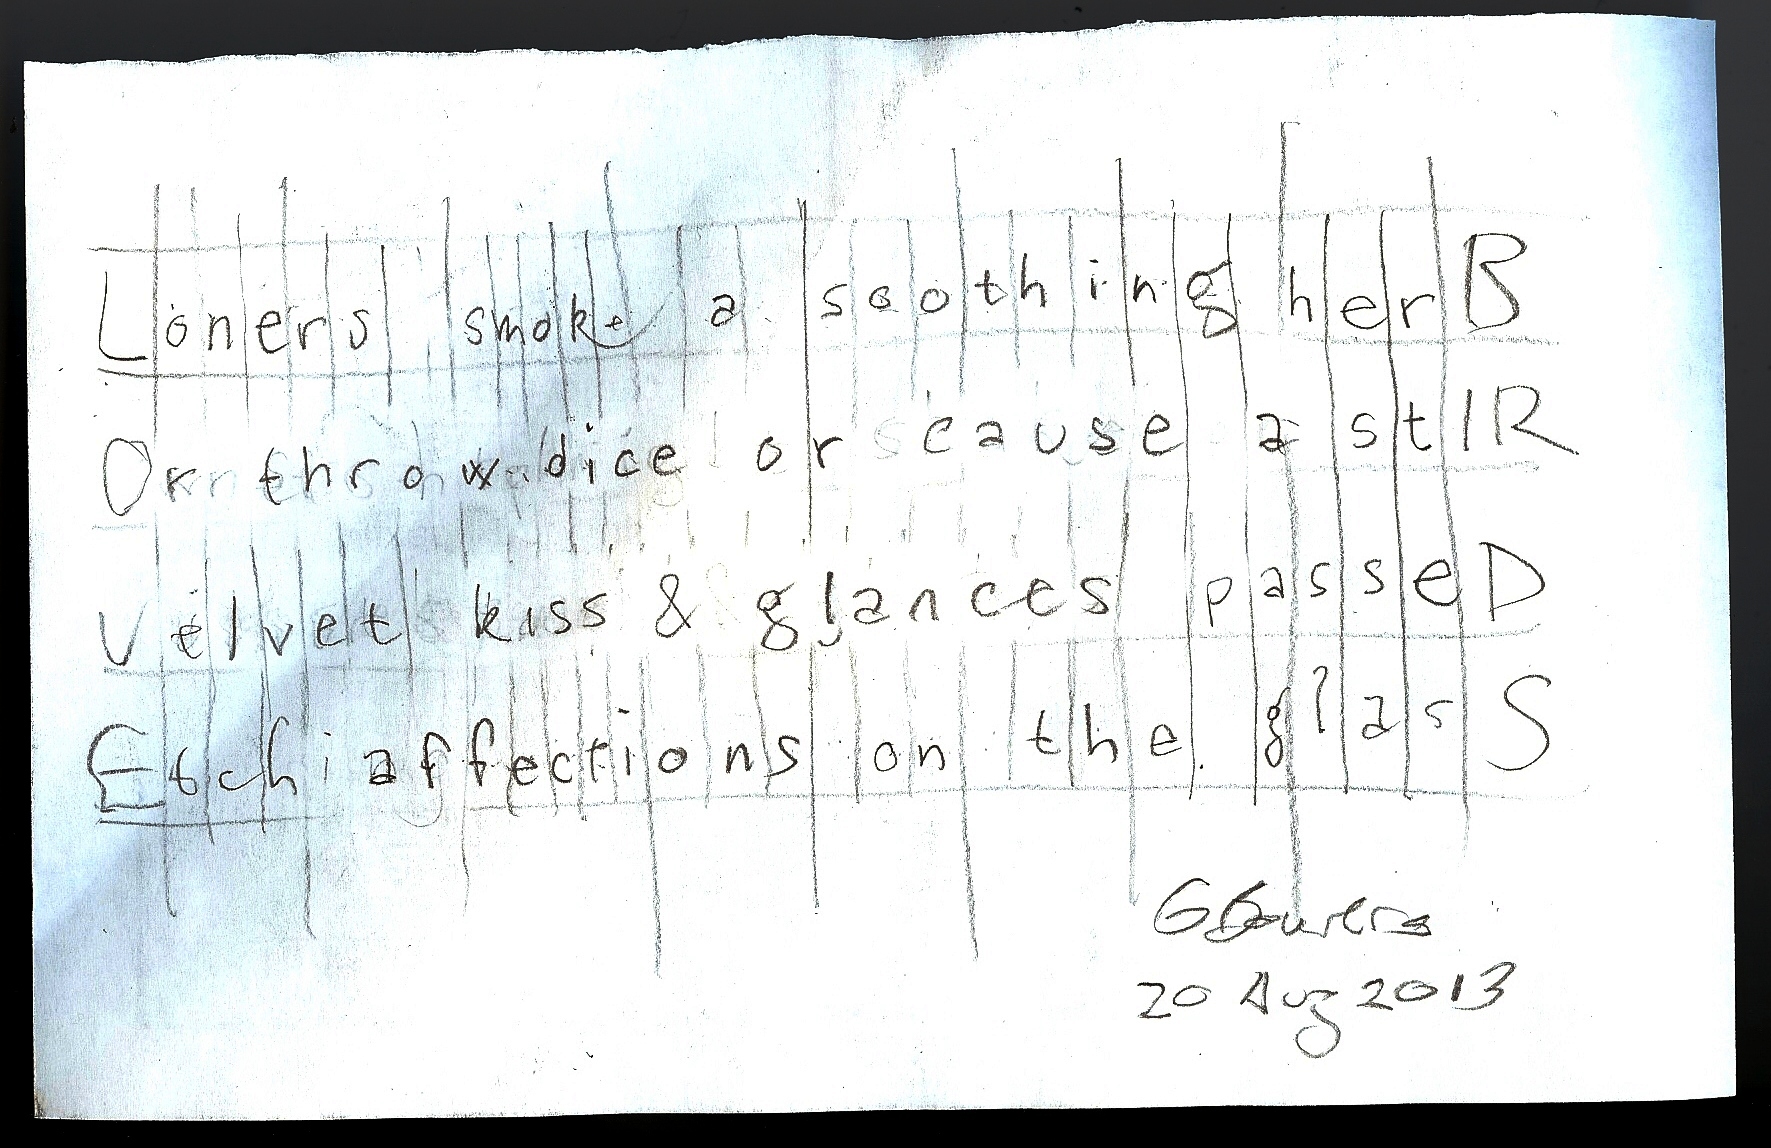 Loners smoke a soothing herB
Or throw dice or cause a stIR
Velvet kiss & glances passeD
Etch affections on the glasS
20 Aug 2013